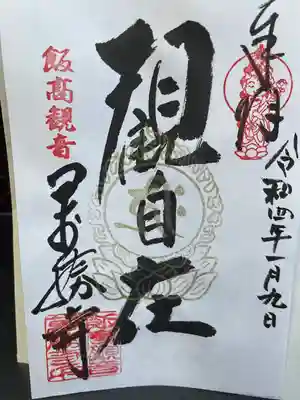 奉拝
令和四年一月九日
観自在
飯高観音
萬勝寺